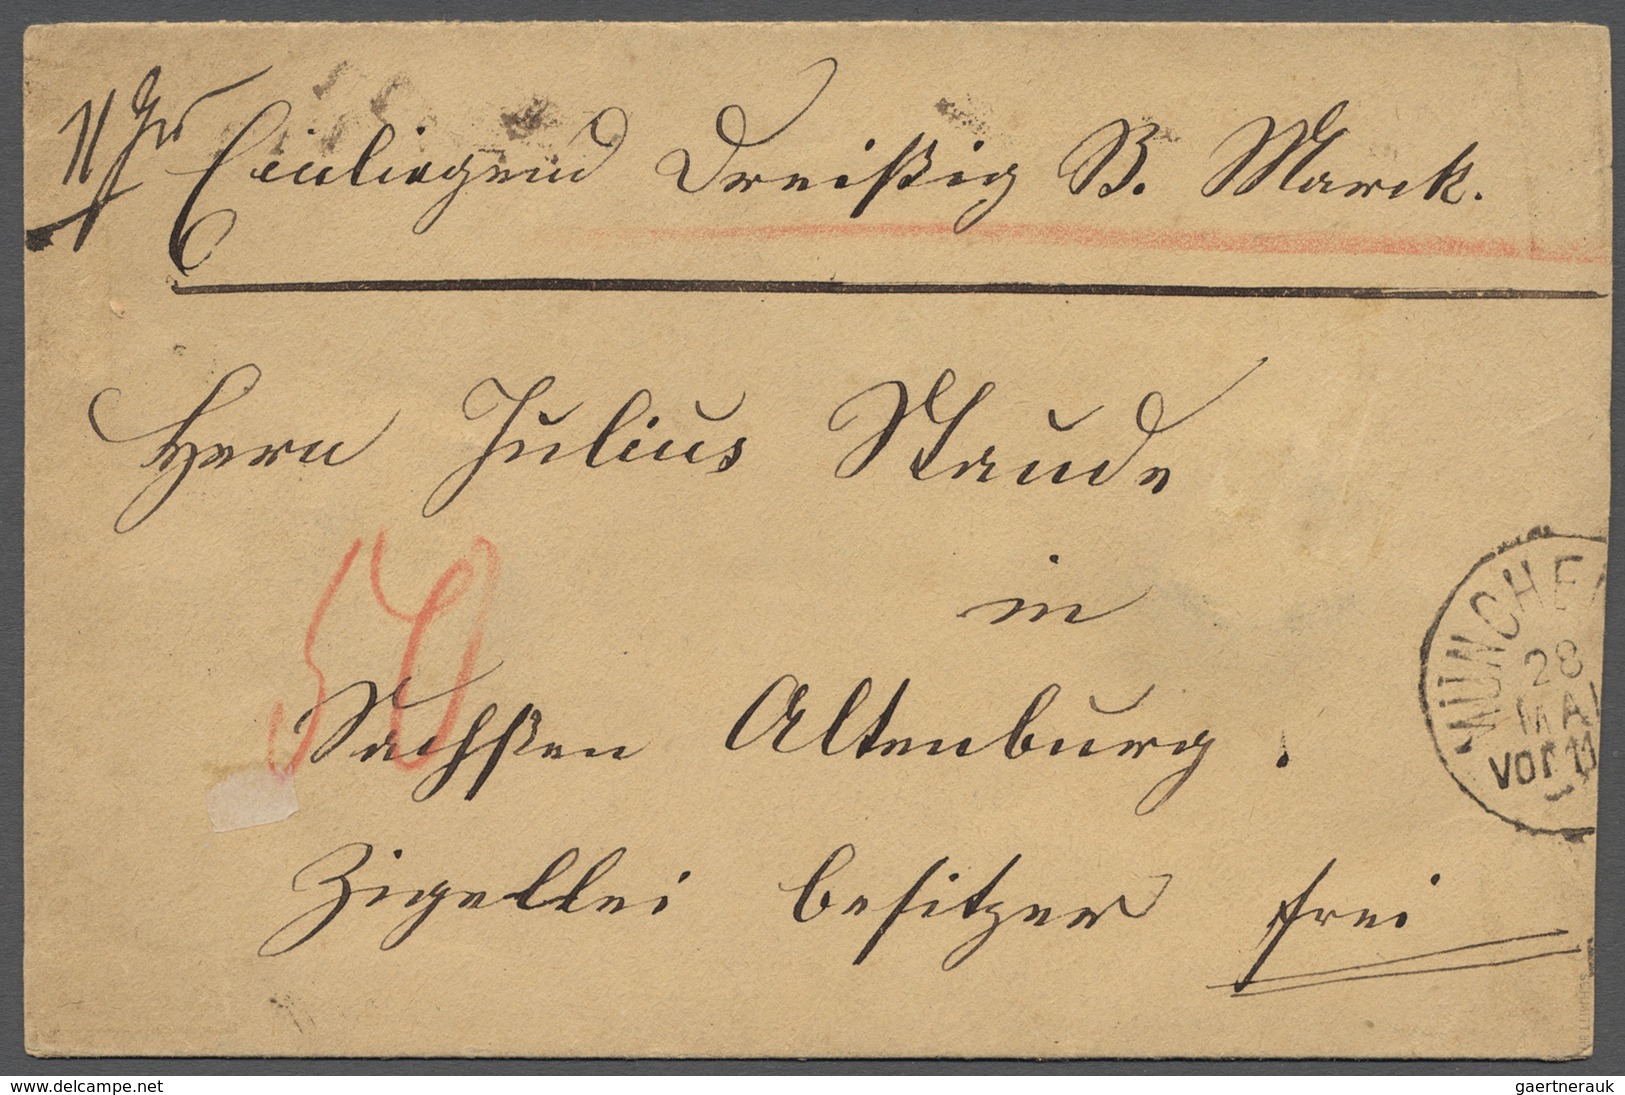 Einliegend Dreißig B. Marck.
Herrn Julius Staude
in
50
Sachßen Altenburg.
Zigellei besitzer frei
MÜNCHE
28
MAI
Vor 11
www.delcampe.net
gaertnerauk